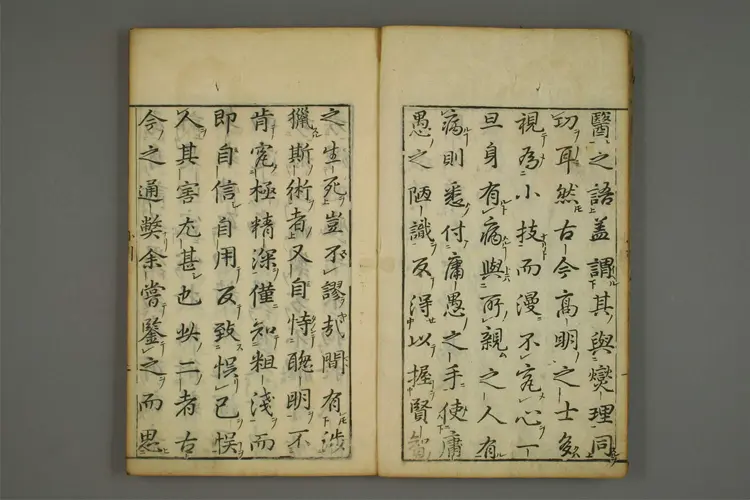 醫之語蓋謂其與燮理同
功耳然古今高明之士多
視為小技而漫不究心一
旦身有病與所親之人有
病則悉付庸愚之手使庸
愚之陋識反得以握賢智
之生死豈不謬哉間有涉
獵斯術者又自恃聰明不
肯究極精深僅知粗淺而
即自信自用反致悞己悞
人其害尤甚也此二者古
今之通弊余嘗鑒之而思